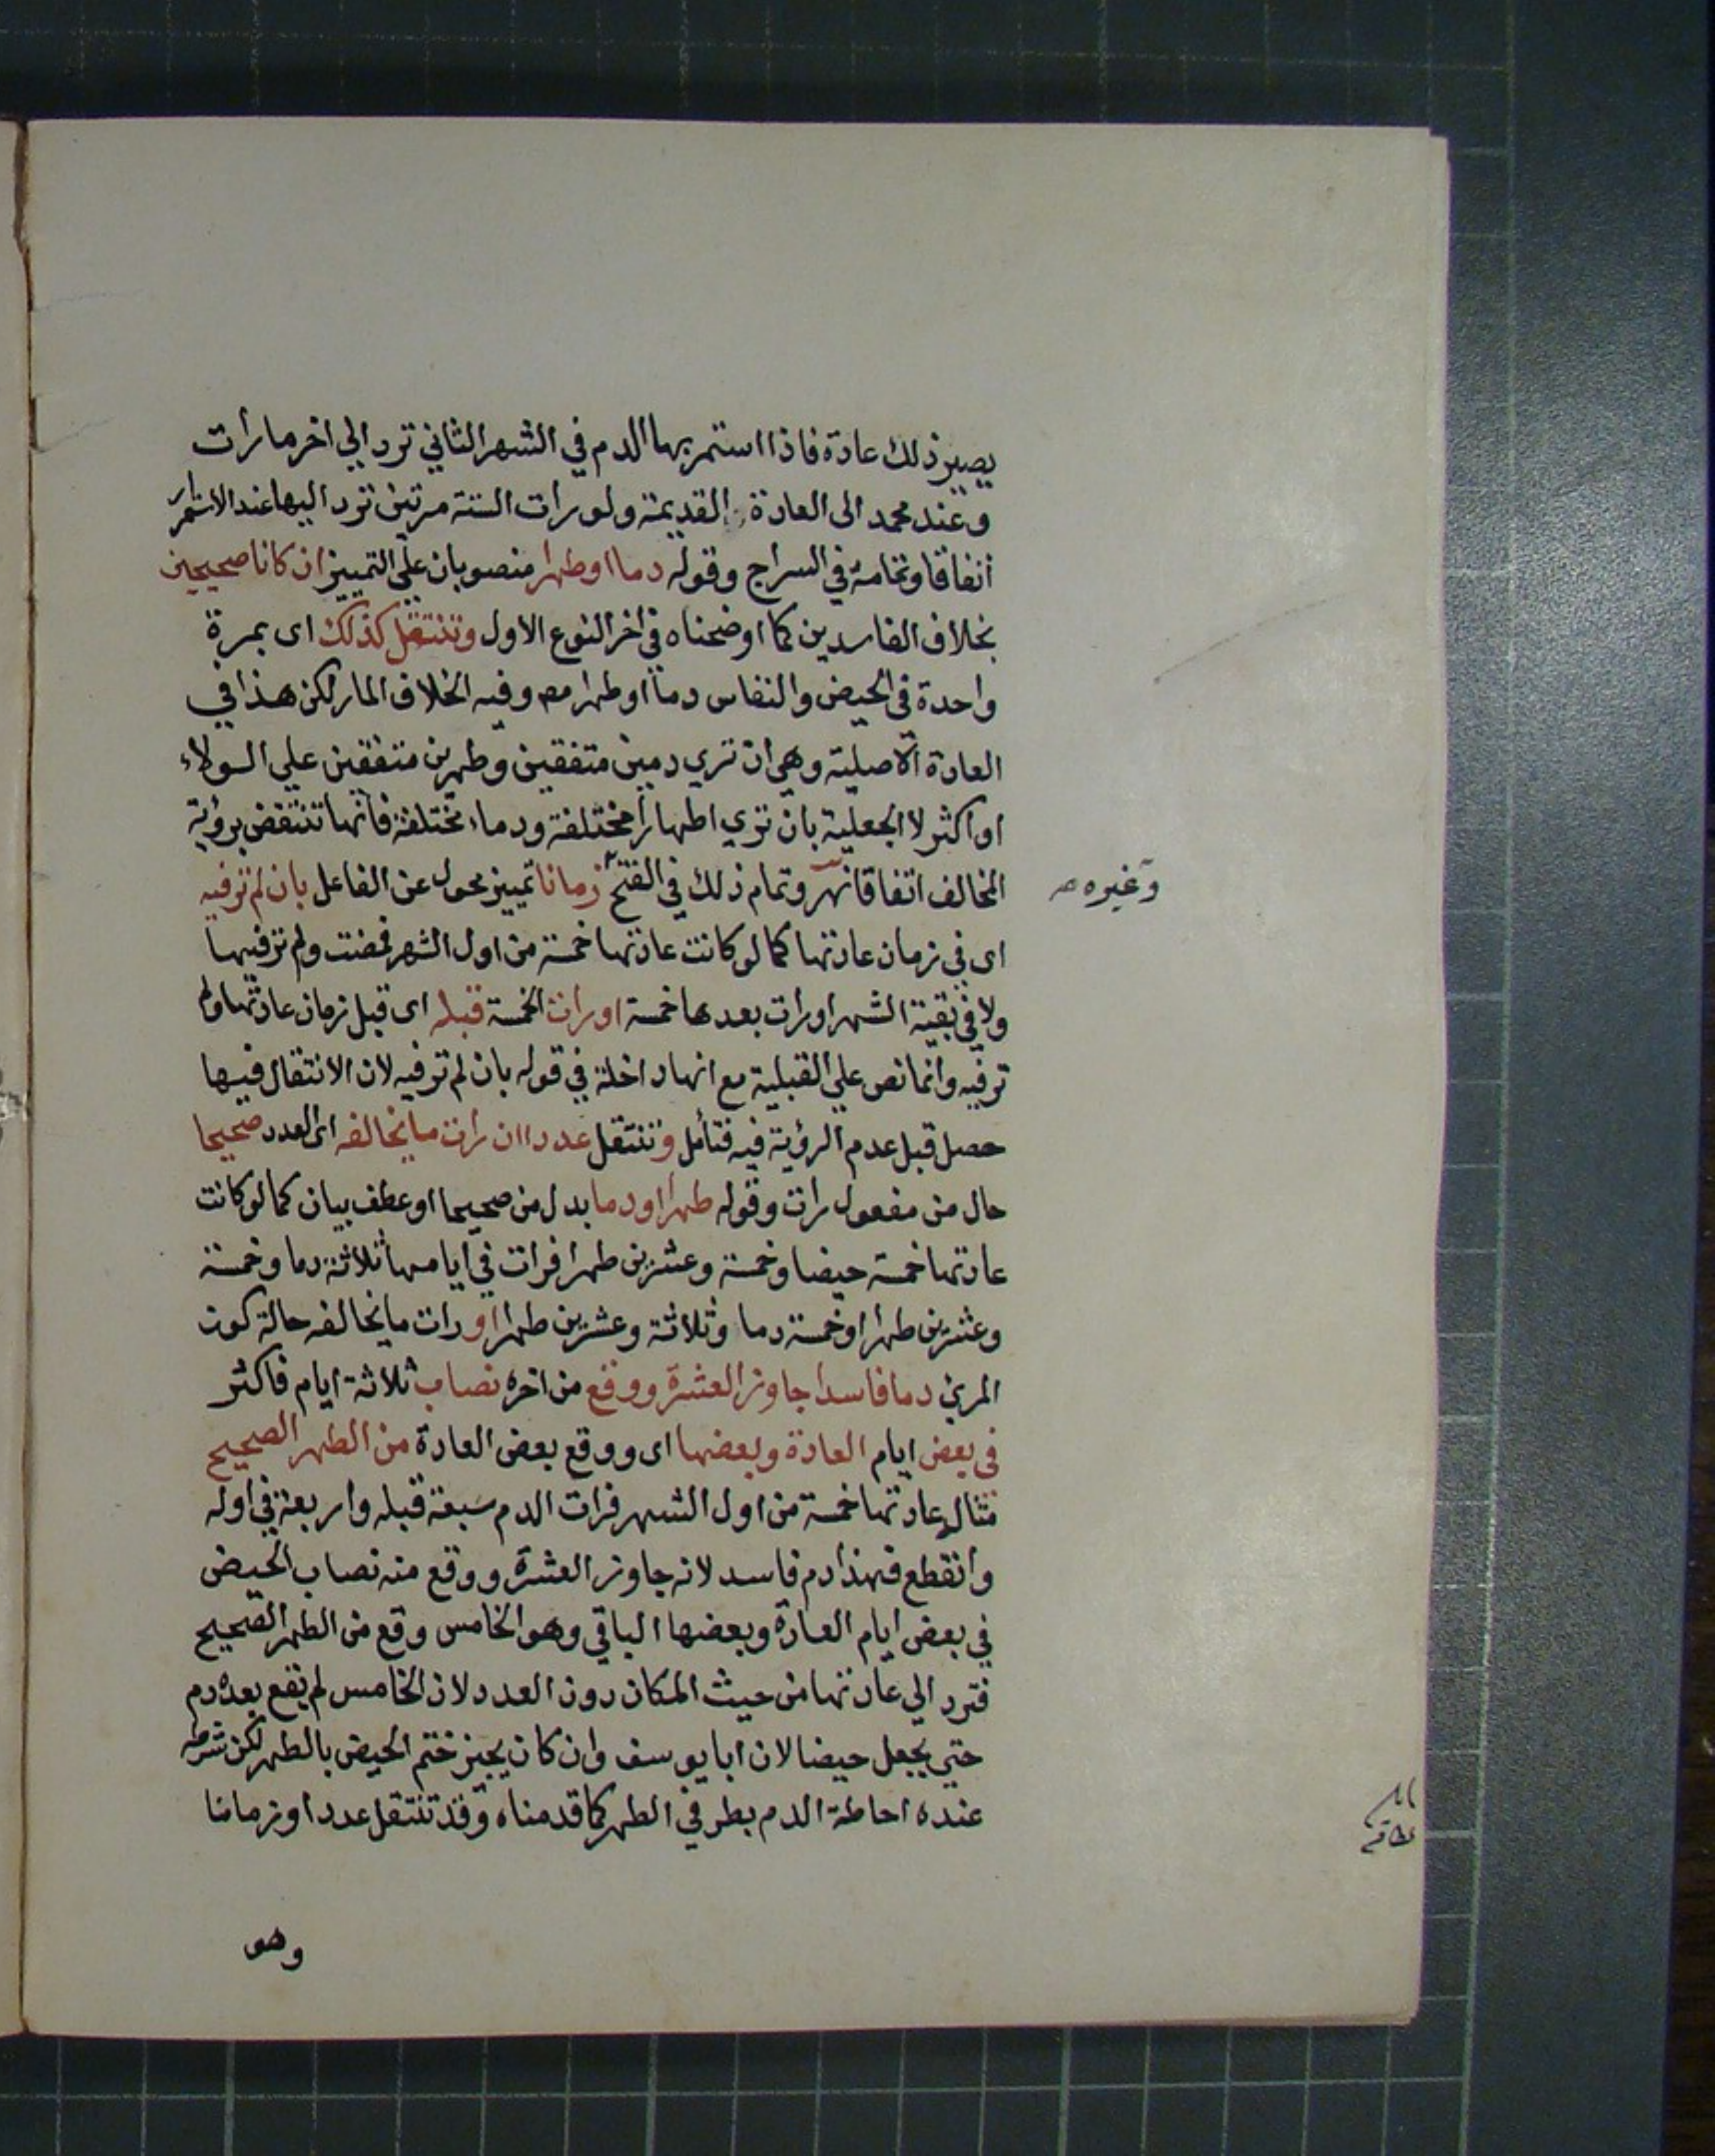 يصير ذلك عادة فاذا استمر بها الدم في الشهر الثاني ترد الي اخر ما رأت
وعند محمد الى العادة القديمة ولو رات الستة مرتين ترد اليها عند الاستمرار
اتفاقا وتمامه في السراج وقوله دما او طهرا منصوبان علي التمييز ان كانا صحيحين
بخلاف الفاسدين كما اوضحناه في اخر النوع الاول وتنتقل كذلك اى بمرة
واحدة في الحيض والنفاس دما او طهرا وفيه الخلاف المار لكن هذا في
العادة الاصلية وهي ان تري دمين متفقين وطهرين متفقين علي الولاء
او اكثر لا الجعلية بان تري اطهارا مختلفة ودماء مختلفة فانها تنتقض برؤية
المخالف اتفاقا نهر وتمام ذلك في الفتح زمانا تمييز محول عن الفاعل بان لم تر فيه
وغيره صح
اى في زمان عادتها كما لو كانت عادتها خمسة من اول الشهر فمضت ولم تر فيها
ولا في بقية الشهر او رات بعدها خمسة او رات الخمسة قبله اى قبل زمان عادتها ولم
تر فيه وانما نص علي القبلية مع انها داخلة في قوله بان لم تر فيه لان الانتقال فيها
حصل قبل عدم الرؤية فيه فتأمل وتنتقل عددا ان رات ما يخالفه اى العدد صحيحا
حال من مفعول رات وقوله طهرا او دما بدل من صحيحا او عطف بيان كما لو كانت
عادتها خمسة حيضا وخمسة وعشرين طهرا فرات في ايامها ثلاثة دما وخمسة
وعشرين طهرا او خمسة دما وثلاثة وعشرين طهرا او رات ما يخالفه حالة كون
المرئي دما فاسدا جاوز العشرة ووقع من اخره نصاب ثلاثة ايام فاكثر
في بعض ايام العادة وبعضها اى ووقع بعض العادة من الطهر الصحيح
مثاله عادتها خمسة من اول الشهر فرات الدم سبعة قبله واربعة في اوله
وانقطع فهذا دم فاسد لانه جاوز العشرة ووقع منه نصاب الحيض
في بعض ايام العادة وبعضها الباقي وهو الخامس وقع من الطهر الصحيح
فترد الي عادتها من حيث المكان دون العدد لان الخامس لم يقع بعده دم
حتي يجعل حيضا لان ابا يوسف وان كان يجيز ختم الحيض بالطهر لكن شرطه
عنده احاطة الدم بطرفي الطهر كما قدمناه وقد تنتقل عددا وزمانا
وهو